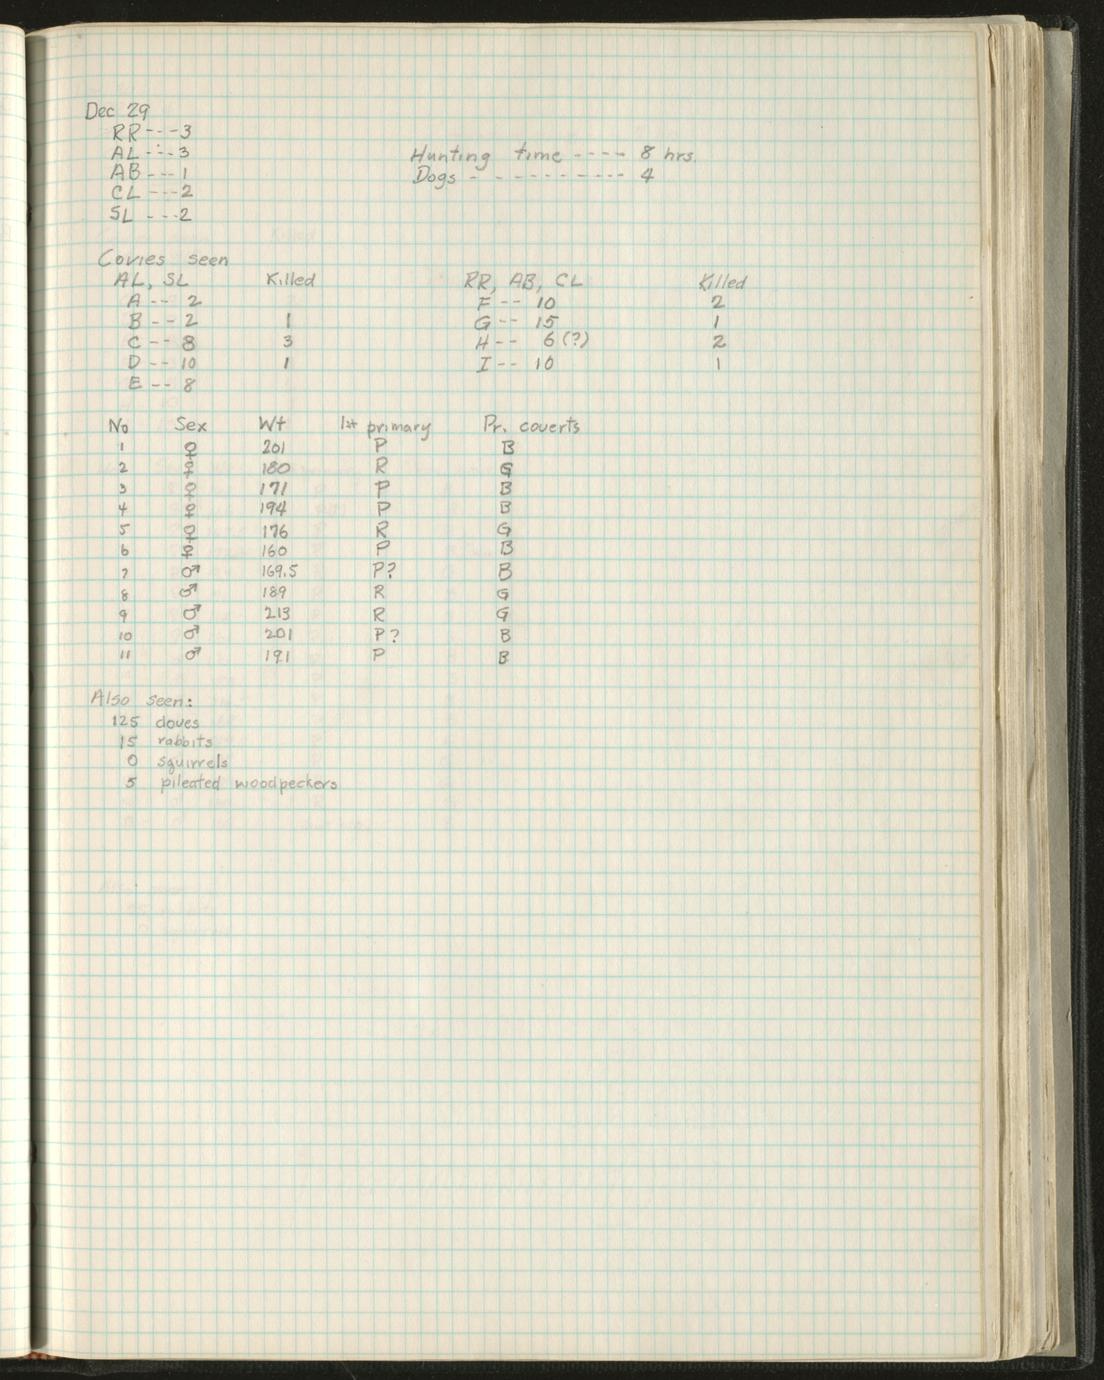 Dec 29
RR---3
AL---3
AB---1
CL---2
SL---2
Hunting time ---- 8 hrs.
Dogs - - - - - - - - - - - 4
Covies seen
AL, SL Killed RR, AB, CL Killed
A -- 2 F -- 10 2
B -- 2 1 G -- 15 1
C -- 8 3 H -- 6(?) 2
D -- 10 1 I -- 10 1
E -- 8
No Sex Wt 1st primary Pr. coverts
1 ♀ 201 P B
2 ♀ 180 R G
3 ♀ 171 P B
4 ♀ 194 P B
5 ♀ 176 R G
6 ♀ 160 P B
7 ♂ 169.5 P? B
8 ♂ 189 R G
9 ♂ 213 R G
10 ♂ 201 P? B
11 ♂ 191 P B
Also seen:
125 doves
15 rabbits
0 squirrels
5 pileated woodpeckers